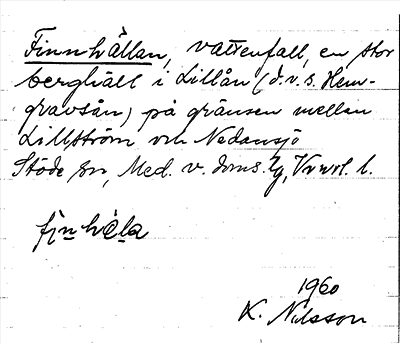 Finnhällan, vattenfall, en stor
berghäll i Lillån (d.v.s. Hem-
gravsån) på gränsen mellan
Lillström och Nedansjö
Stöde sn, Med. v. doms. tg, Vnrl. l.
fi̠n hèla
1960
K. Nilsson